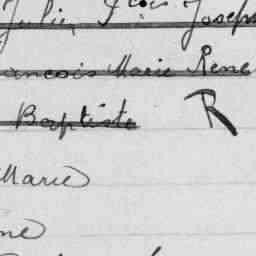 Julie, Fcois Joseph
ancois Marie Rene
Baptiste R
Marie
ne